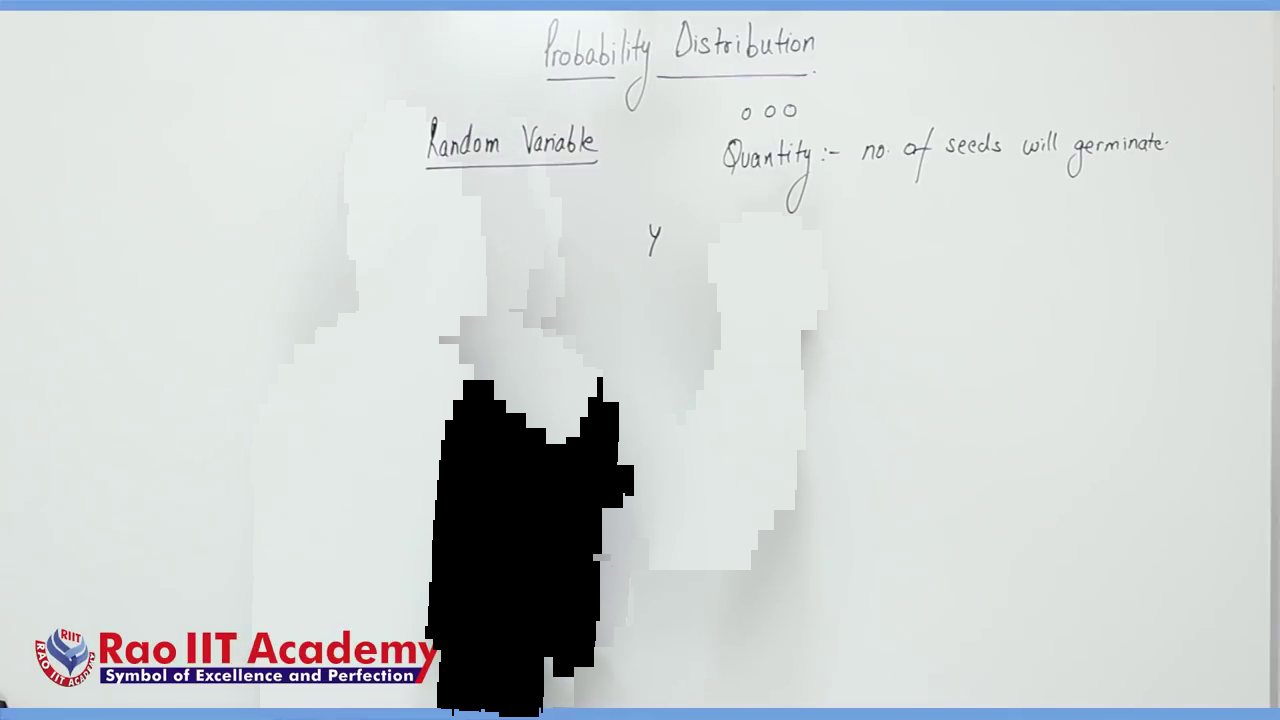 Probability Distribution
Random Variable
o o o
Quantity :- no. of seeds will germinate.
y
RIIT
RAO IIT ACADEMY
Rao IIT Academy
Symbol of Excellence and Perfection